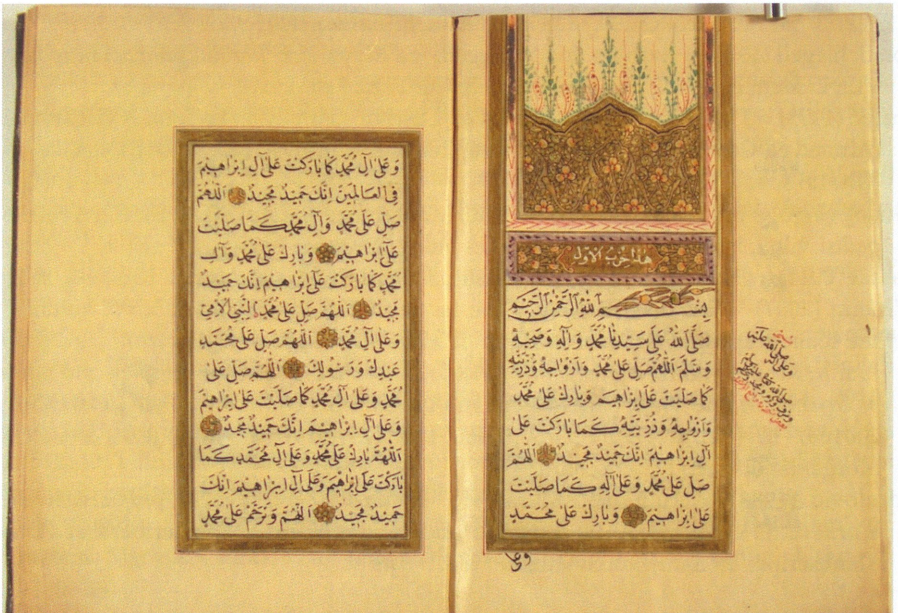 هذا حزب الاول
بِسْمِ اللّٰهِ الرَّحْمٰنِ الرَّحِيمِ
صَلَّى اللّٰهُ عَلٰى سَيِّدِنَا مُحَمَّدٍ وَاٰلِهِ وَصَحْبِهِ
وَسَلَّمَ اَللّٰهُمَّ صَلِّ عَلٰى مُحَمَّدٍ وَاَزْوَاجِهِ وَذُرِّيَّتِهِ
كَمَا صَلَّيْتَ عَلٰى اِبْرٰاهِيمَ وَبَارِكْ عَلٰى مُحَمَّدٍ
وَاَزْوَاجِهِ وَذُرِّيَّتِهِ كَمَا بَارَكْتَ عَلٰى
اٰلِ اِبْرٰاهِيمَ اِنَّكَ حَمِيدٌ مَجِيدٌ اَللّٰهُمَّ
صَلِّ عَلٰى مُحَمَّدٍ وَعَلٰى اٰلِهِ كَمَا صَلَّيْتَ
عَلٰى اِبْرٰاهِيمَ وَبَارِكْ عَلٰى مُحَمَّدٍ
وعلى
وَعَلٰى اٰلِ مُحَمَّدٍ كَمَا بَارَكْتَ عَلٰى اٰلِ اِبْرٰاهِيمَ
فِي الْعَالَمِينَ اِنَّكَ حَمِيدٌ مَجِيدٌ اَللّٰهُمَّ
صَلِّ عَلٰى مُحَمَّدٍ وَاٰلِ مُحَمَّدٍ كَمَا صَلَّيْتَ
عَلٰى اِبْرٰاهِيمَ وَبَارِكْ عَلٰى مُحَمَّدٍ وَاٰلِ
مُحَمَّدٍ كَمَا بَارَكْتَ عَلٰى اِبْرٰاهِيمَ اِنَّكَ حَمِيدٌ
مَجِيدٌ اَللّٰهُمَّ صَلِّ عَلٰى مُحَمَّدٍ النَّبِيِّ الْاُمِّيِّ
وَعَلٰى اٰلِ مُحَمَّدٍ اَللّٰهُمَّ صَلِّ عَلٰى مُحَمَّدٍ
عَبْدِكَ وَرَسُولِكَ اَللّٰهُمَّ صَلِّ عَلٰى
مُحَمَّدٍ وَعَلٰى اٰلِ مُحَمَّدٍ كَمَا صَلَّيْتَ عَلٰى اِبْرٰاهِيمَ
وَعَلٰى اٰلِ اِبْرٰاهِيمَ اِنَّكَ حَمِيدٌ مَجِيدٌ
اَللّٰهُمَّ بَارِكْ عَلٰى مُحَمَّدٍ وَعَلٰى اٰلِ مُحَمَّدٍ كَمَا
بَارَكْتَ عَلٰى اِبْرٰاهِيمَ وَعَلٰى اٰلِ اِبْرٰاهِيمَ اِنَّكَ
حَمِيدٌ مَجِيدٌ اَللّٰهُمَّ وَتَرَحَّمْ عَلٰى مُحَمَّدٍ